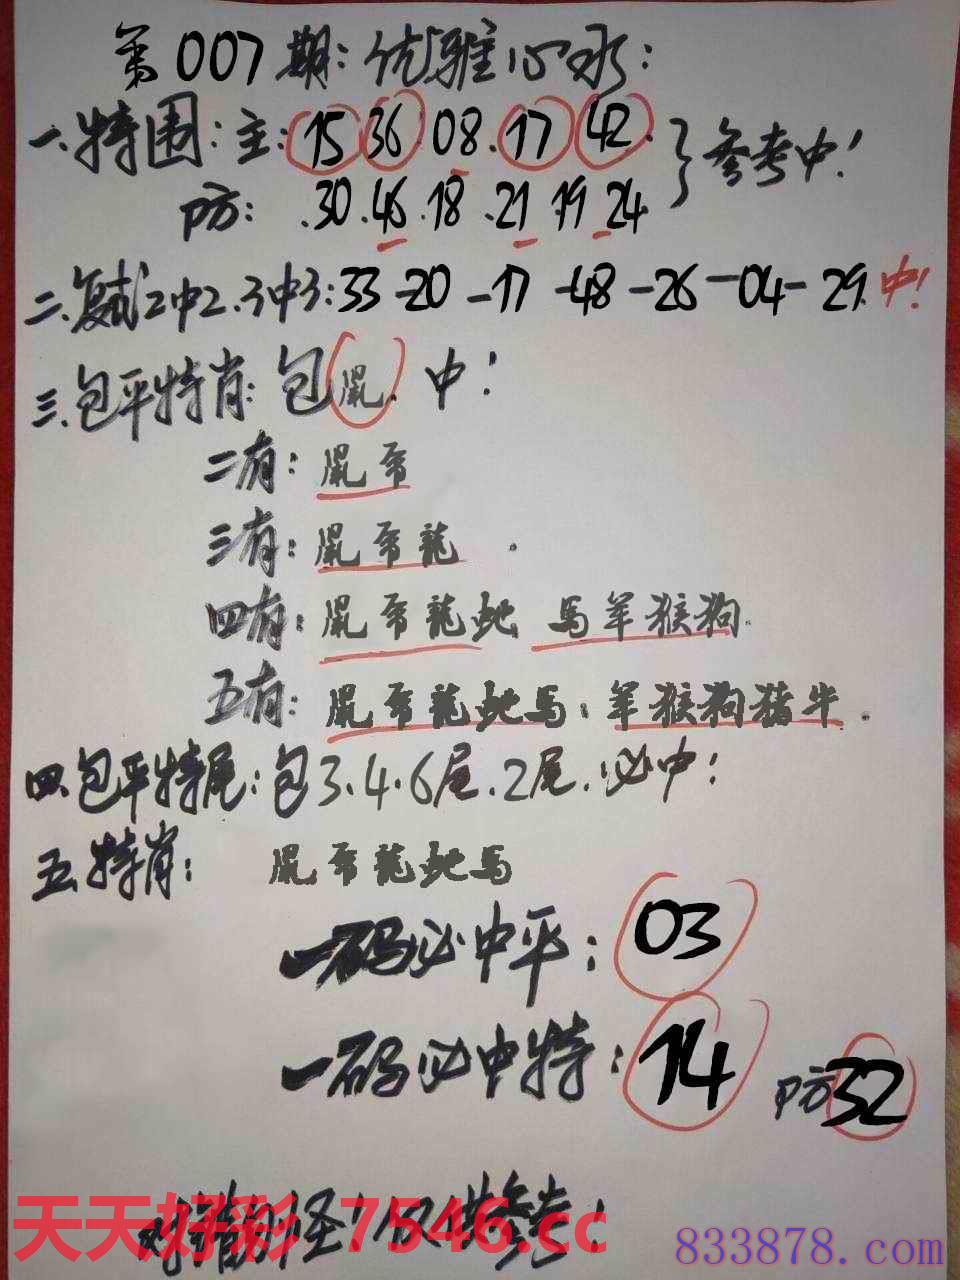 第007期:优雅心水:
一.特围:主:15 36 08.17 42.}参考中!
防: .30.46.18.21 19 24
二.复试2中2.3中3:33-20-17-48-26-04-29.中!
三.包平特肖:包鼠.中!
二有:鼠虎
三有:鼠虎龍.
四有:鼠虎龍蛇 馬羊猴狗.
五有:鼠虎龍蛇馬:羊猴狗猪牛.
四.包平特尾:包3.4.6尾.2尾.必中!
五.特肖: 鼠虎龍蛇馬
一码必中平:03
一码必中特:14 防32
错别怪!仅供参考!
天天好彩 7546.cc
833878.com